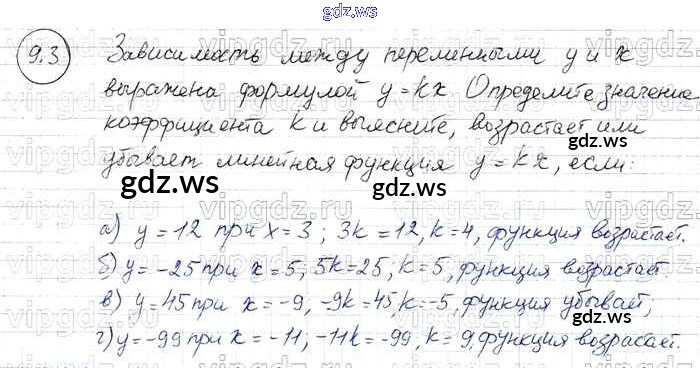 gdz.ws
9.3
Зависимость между переменными y и x
выражена формулой y=kx Определите значение
коэффициента k и выясните, возрастает или
убывает линейная функция y=kx, если:
gdz.ws
gdz.ws
а) y=12 при x=3; 3k=12, k=4, функция возрастает.
б) y=-25 при x=5; 5k=25, k=5, функция возрастает.
в) y=45 при x=-9, -9k=45, k=-5, функция убывает,
г) y=-99 при x=-11, -11k=-99, k=9, функция возрастает.
gdz.ws
gdz.ws
vipgdz.ru